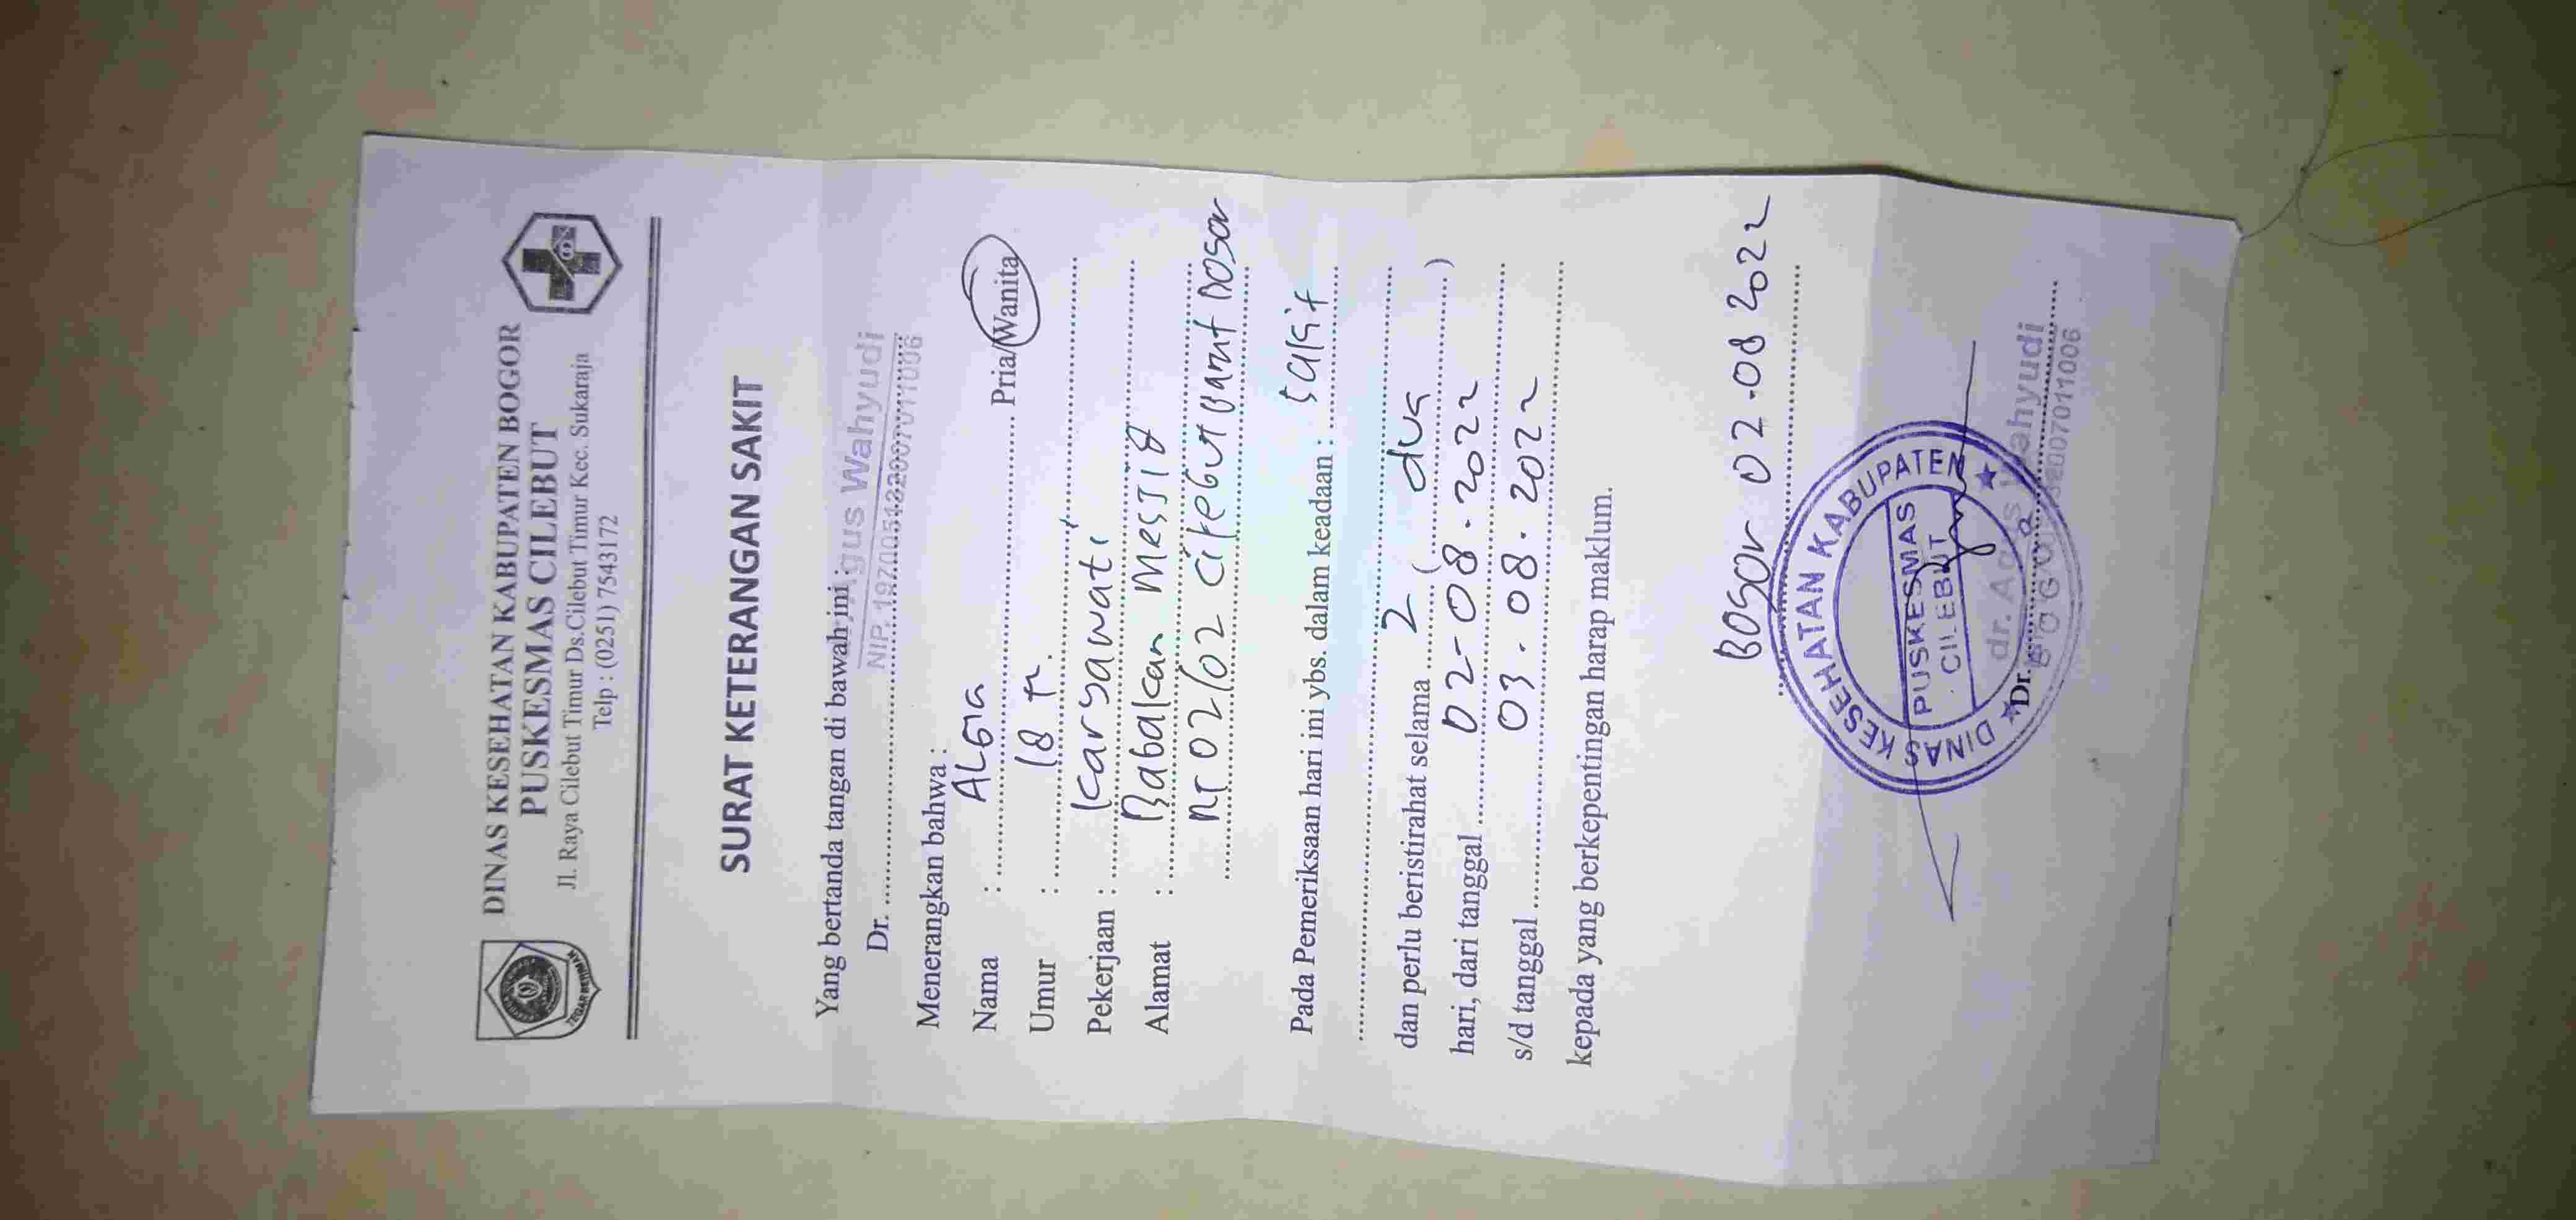 DINAS KESEHATAN KABUPATEN BOGOR
PUSKESMAS CILEBUT
Jl. Raya Cilebut Timur Ds.Cilebut Timur Kec. Sukaraja
Telp : (0251) 7543172
TEGAR BERIMAN
SURAT KETERANGAN SAKIT
Yang bertanda tangan di bawah ini :
Dr. Agus Wahyudi
NIP. 197005182007011006
Menerangkan bahwa :
Nama : ALGIA Pria/Wanita
Umur : 18 th.
Pekerjaan : Karyawati
Alamat : Babakan Mesjid
RT 02/02 Cilebut Barat Bogor
Pada Pemeriksaan hari ini ybs. dalam keadaan : Sakit
dan perlu beristirahat selama 2 ( dua )
hari, dari tanggal 02-08.2022
s/d tanggal 03.08.2022
kepada yang berkepentingan harap maklum.
Bogor 02-08 2022
DINAS KESEHATAN KABUPATEN
PUSKESMAS
CILEBUT
BOGOR
dr. Agus Wahyudi
Dr.